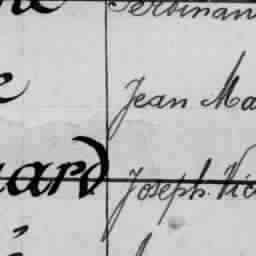 Ferdinan
e Jean Ma
uard Joseph Vic